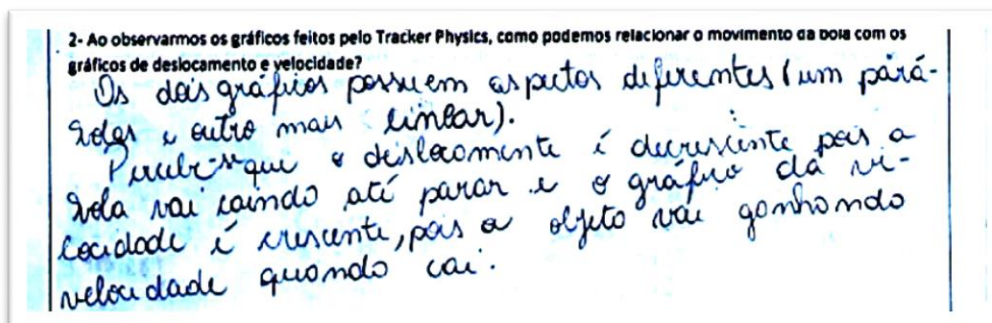 2- Ao observarmos os gráficos feitos pelo Tracker Physics, como podemos relacionar o movimento da bola com os
gráficos de deslocamento e velocidade?
Os dois gráficos possuem aspectos diferentes (um pará-
bolas e outro mais linear).
Percebe-se que o deslocamento é decrescente pois a
bola vai caindo até parar e o gráfico da ve-
locidade é crescente, pois o objeto vai ganhando
velocidade quando cai.